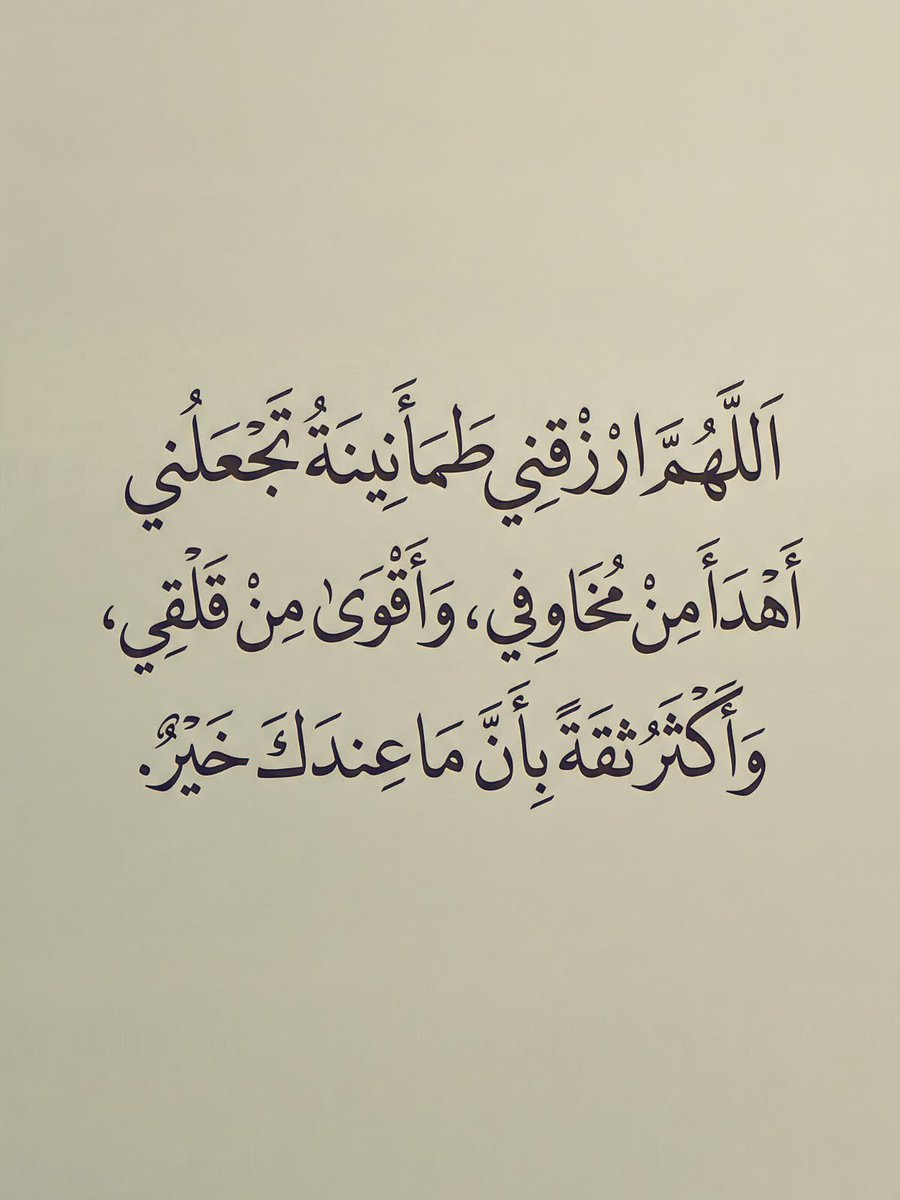 اَللَّهُمَّ ارْزْقنِي طَمَأَنِينَةُ تَجْعَلُني
أَهْدَأَ مِنْ مُخَاوِفي، وَأَقْوَىٰ مِنْ قَلْقِي،
وَأَكْثَرُ ثقَةً بِأَنَّ مَا عِندَكَ خَيْرٌ.